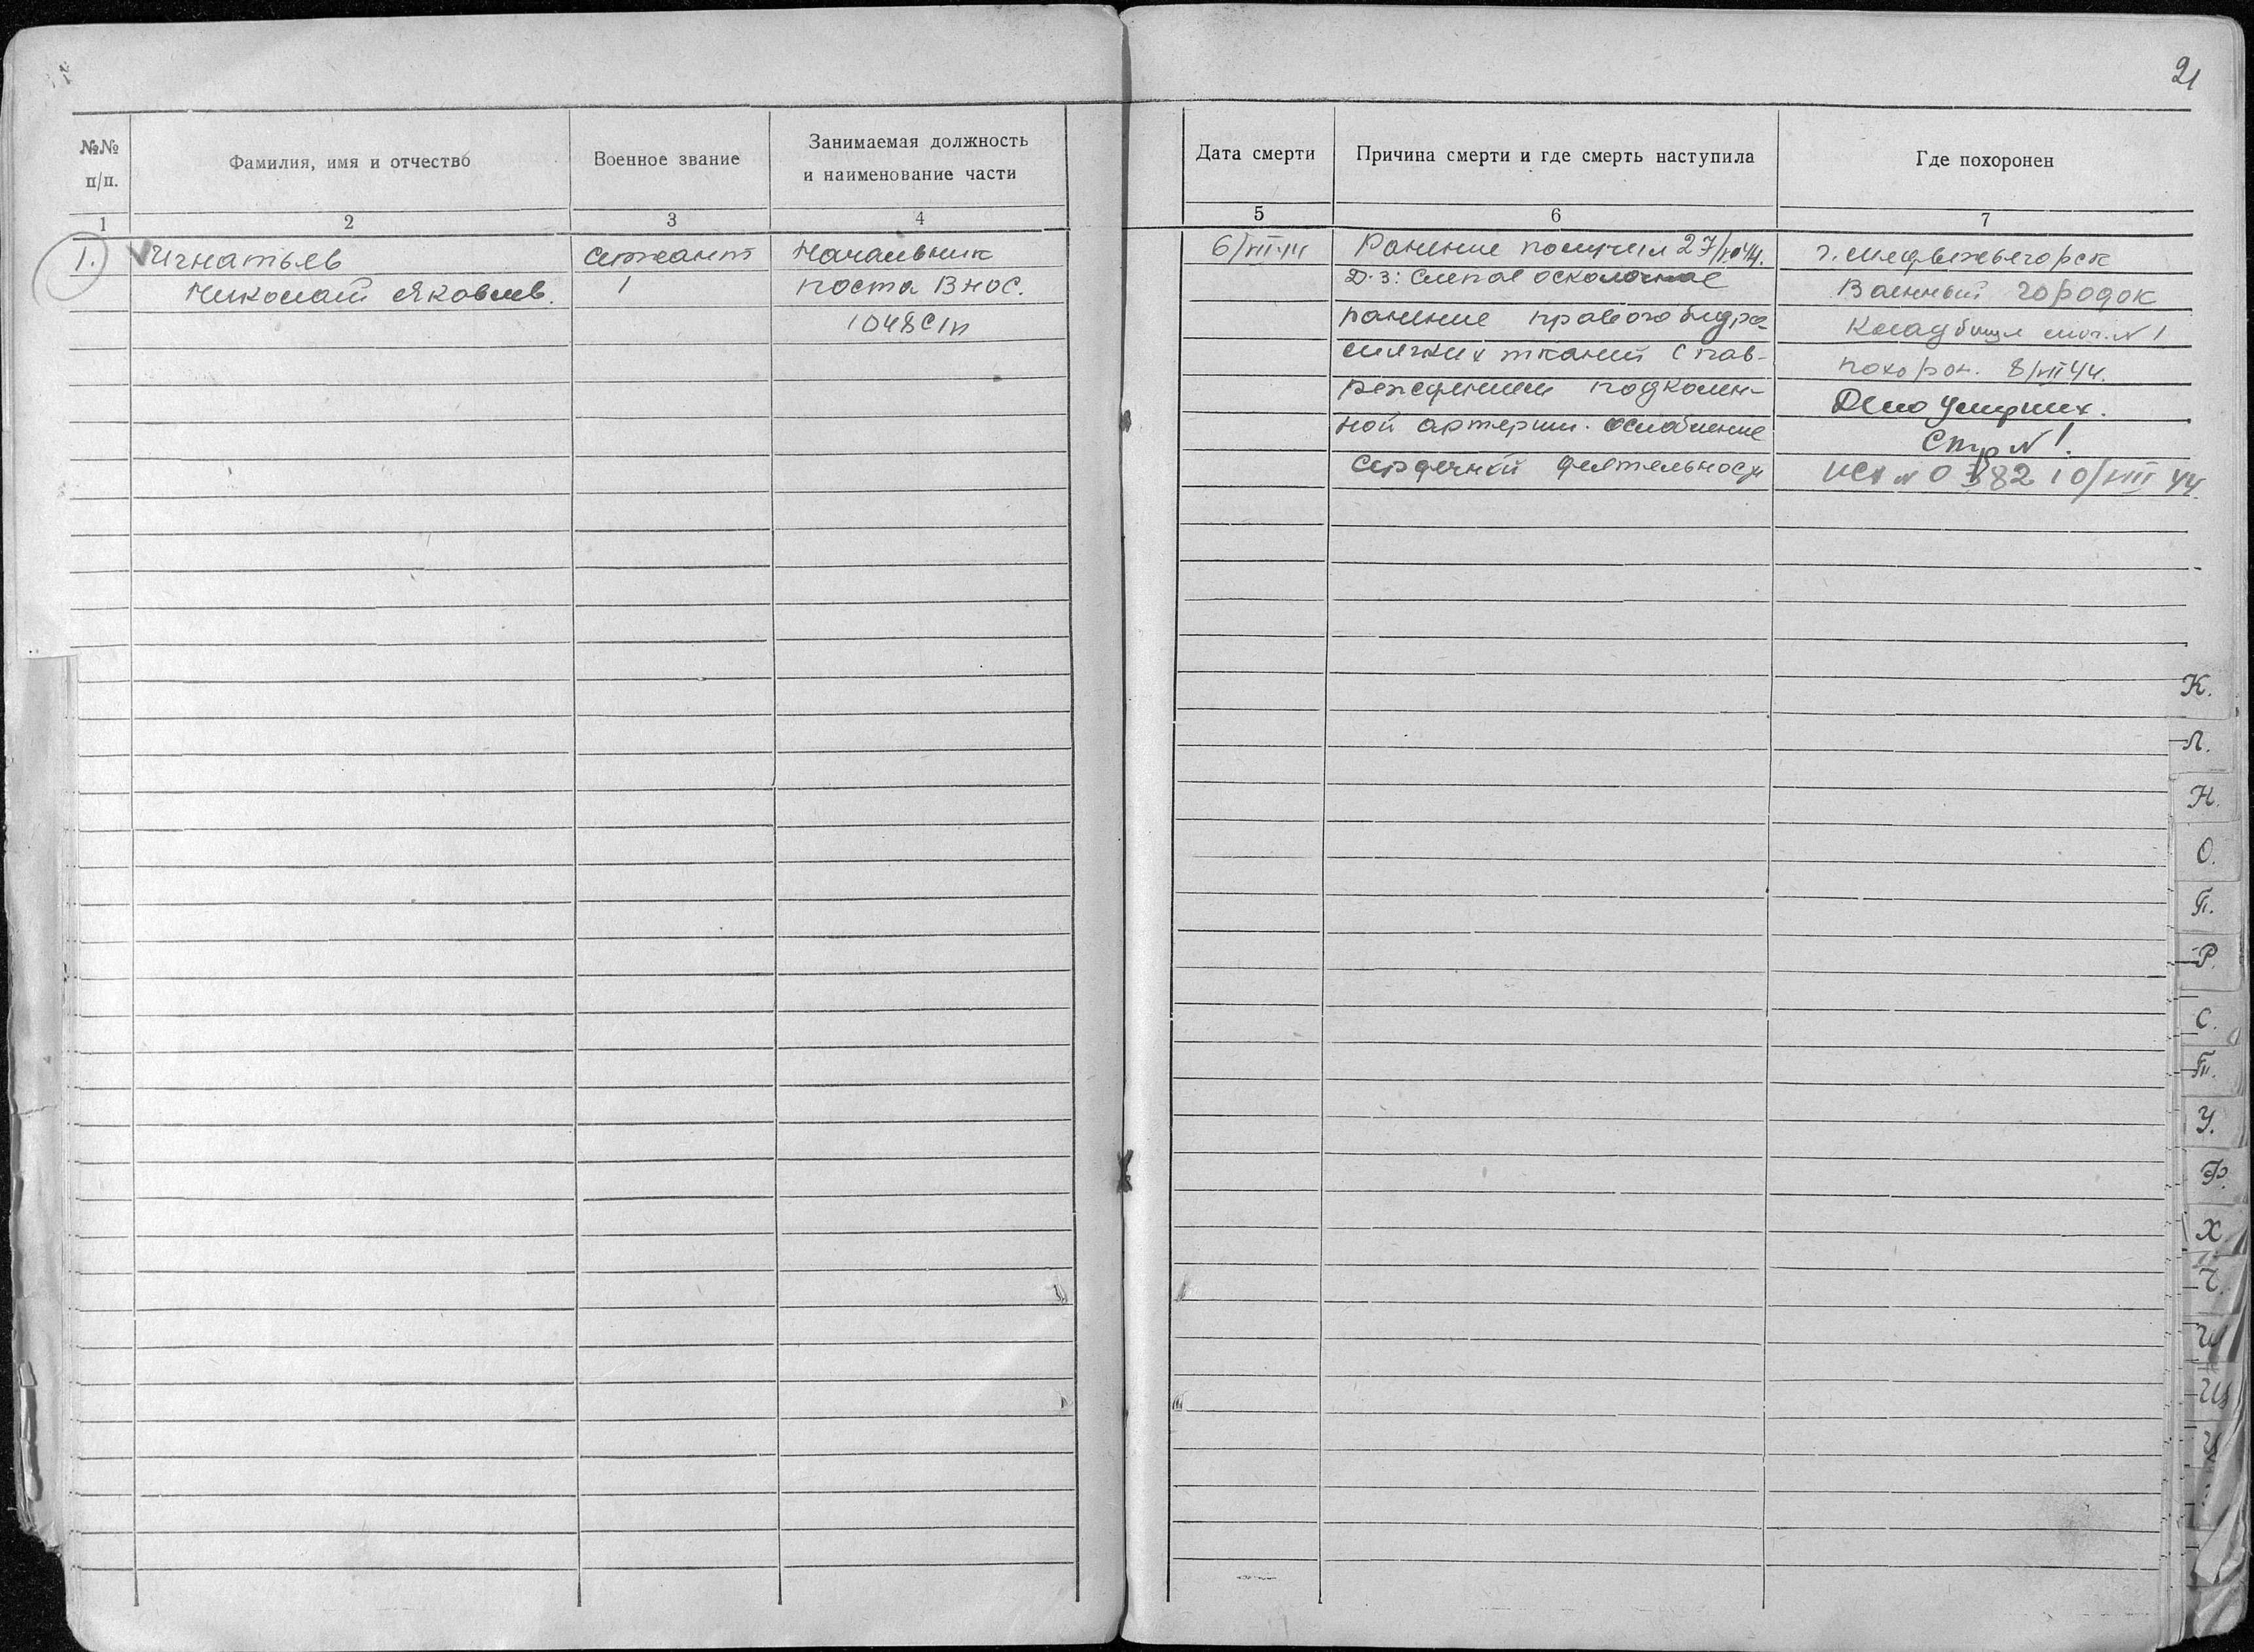 21
№№ п/п.
Фамилия, имя и отчество
Военное звание
Занимаемая должность
и наименование части
Дата смерти
Причина смерти и где смерть наступила
Где похоронен
1 2 3 4 5 6 7
1. Игнатьев
Николай Яковлев.
сержант
Начальник
поста Внос.
1048 сп
6/VIII 44
Ранение получил 27/VII 44.
Д-з: Слепое осколочное
ранение правого бедра
мягких тканей с пов-
реждением подколен-
ной артерии. Ослабление
сердечной деятельности
г. Медвежьегорск
Военный городок
Кладбище мог. № 1
похорон. 8/VIII 44.
Дело умерших.
Стр № 1.
10/VIII 44
К.
Л.
Н.
О.
П.
Р.
С.
Т.
У.
Ф.
Х.
Ч.
Ш